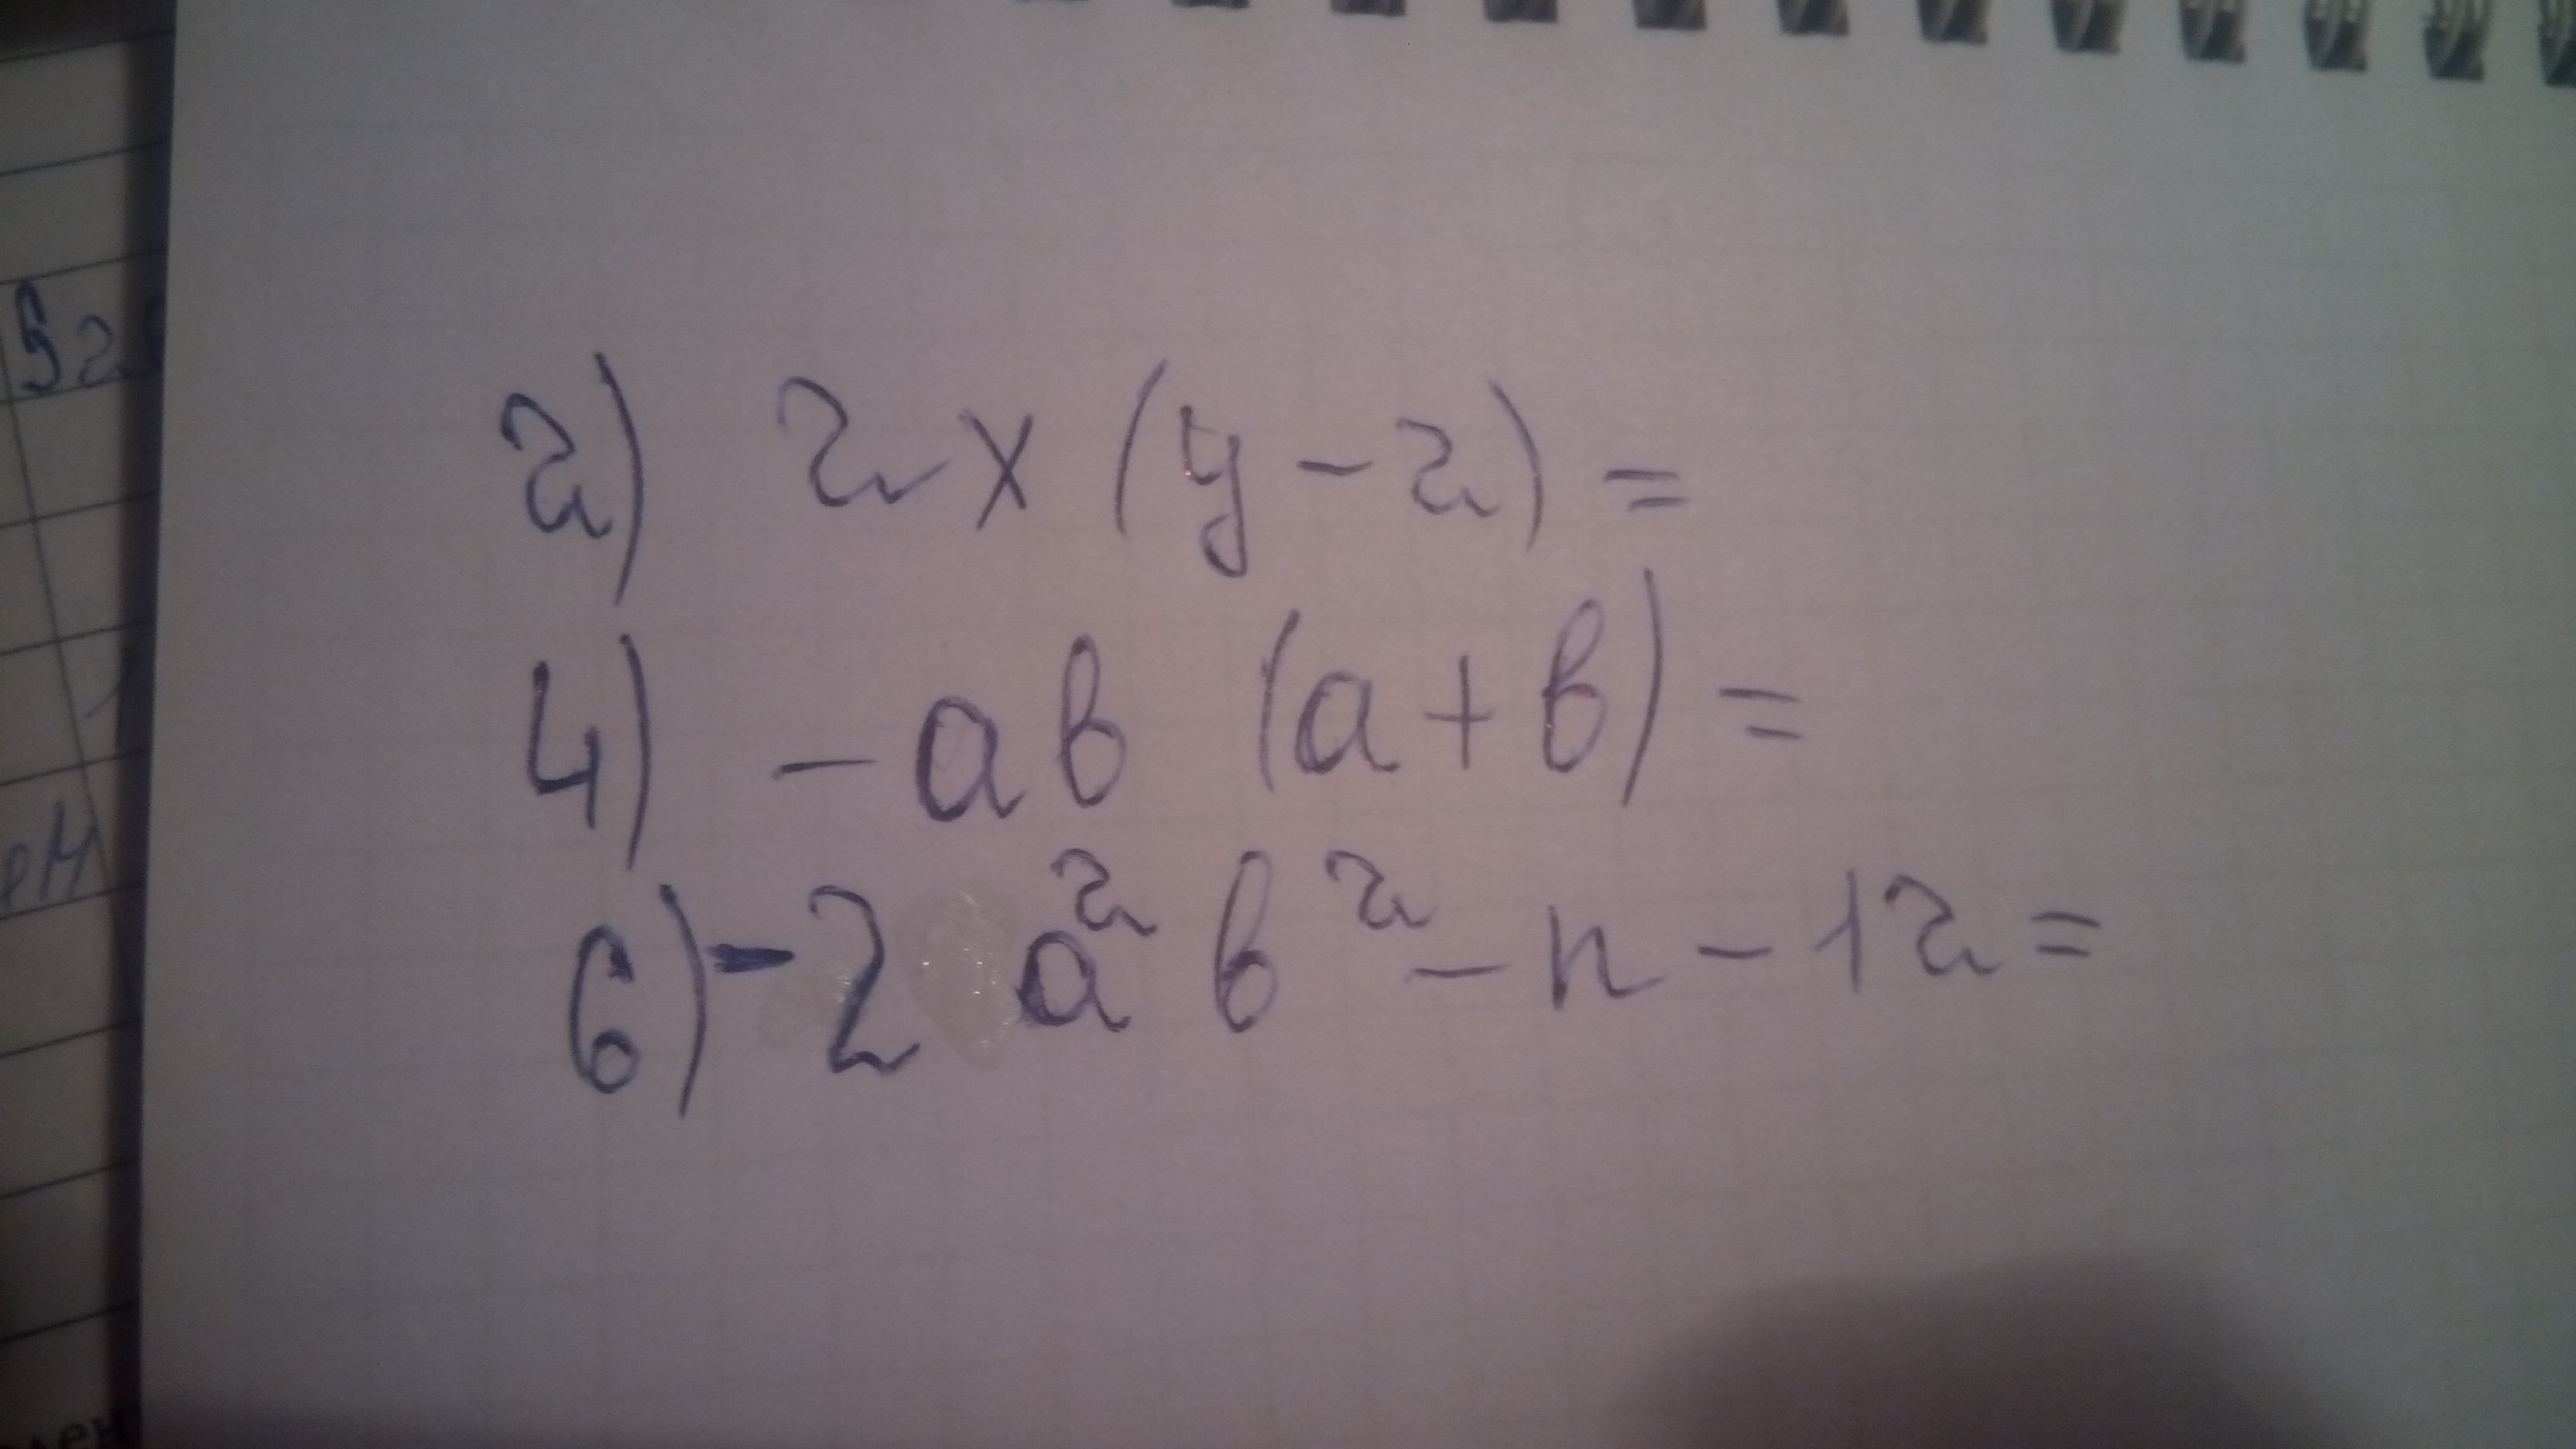 2) 2x (y - 2) =
4) - ab (a + b) =
6) - 2 a² b² - n - 12 =